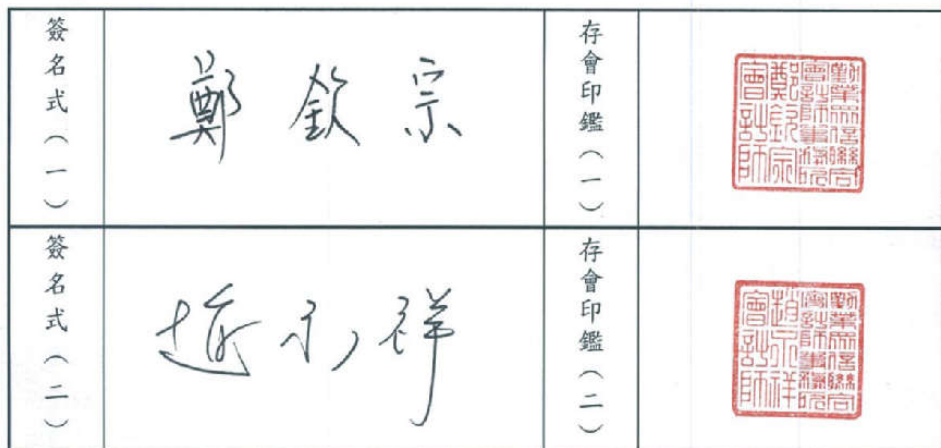 簽名式（一）
鄭欽宗
存會印鑑（一）
勤業眾信聯合
會計師事務所
鄭欽宗
會計師
簽名式（二）
趙永祥
存會印鑑（二）
勤業眾信聯合
會計師事務所
趙永祥
會計師